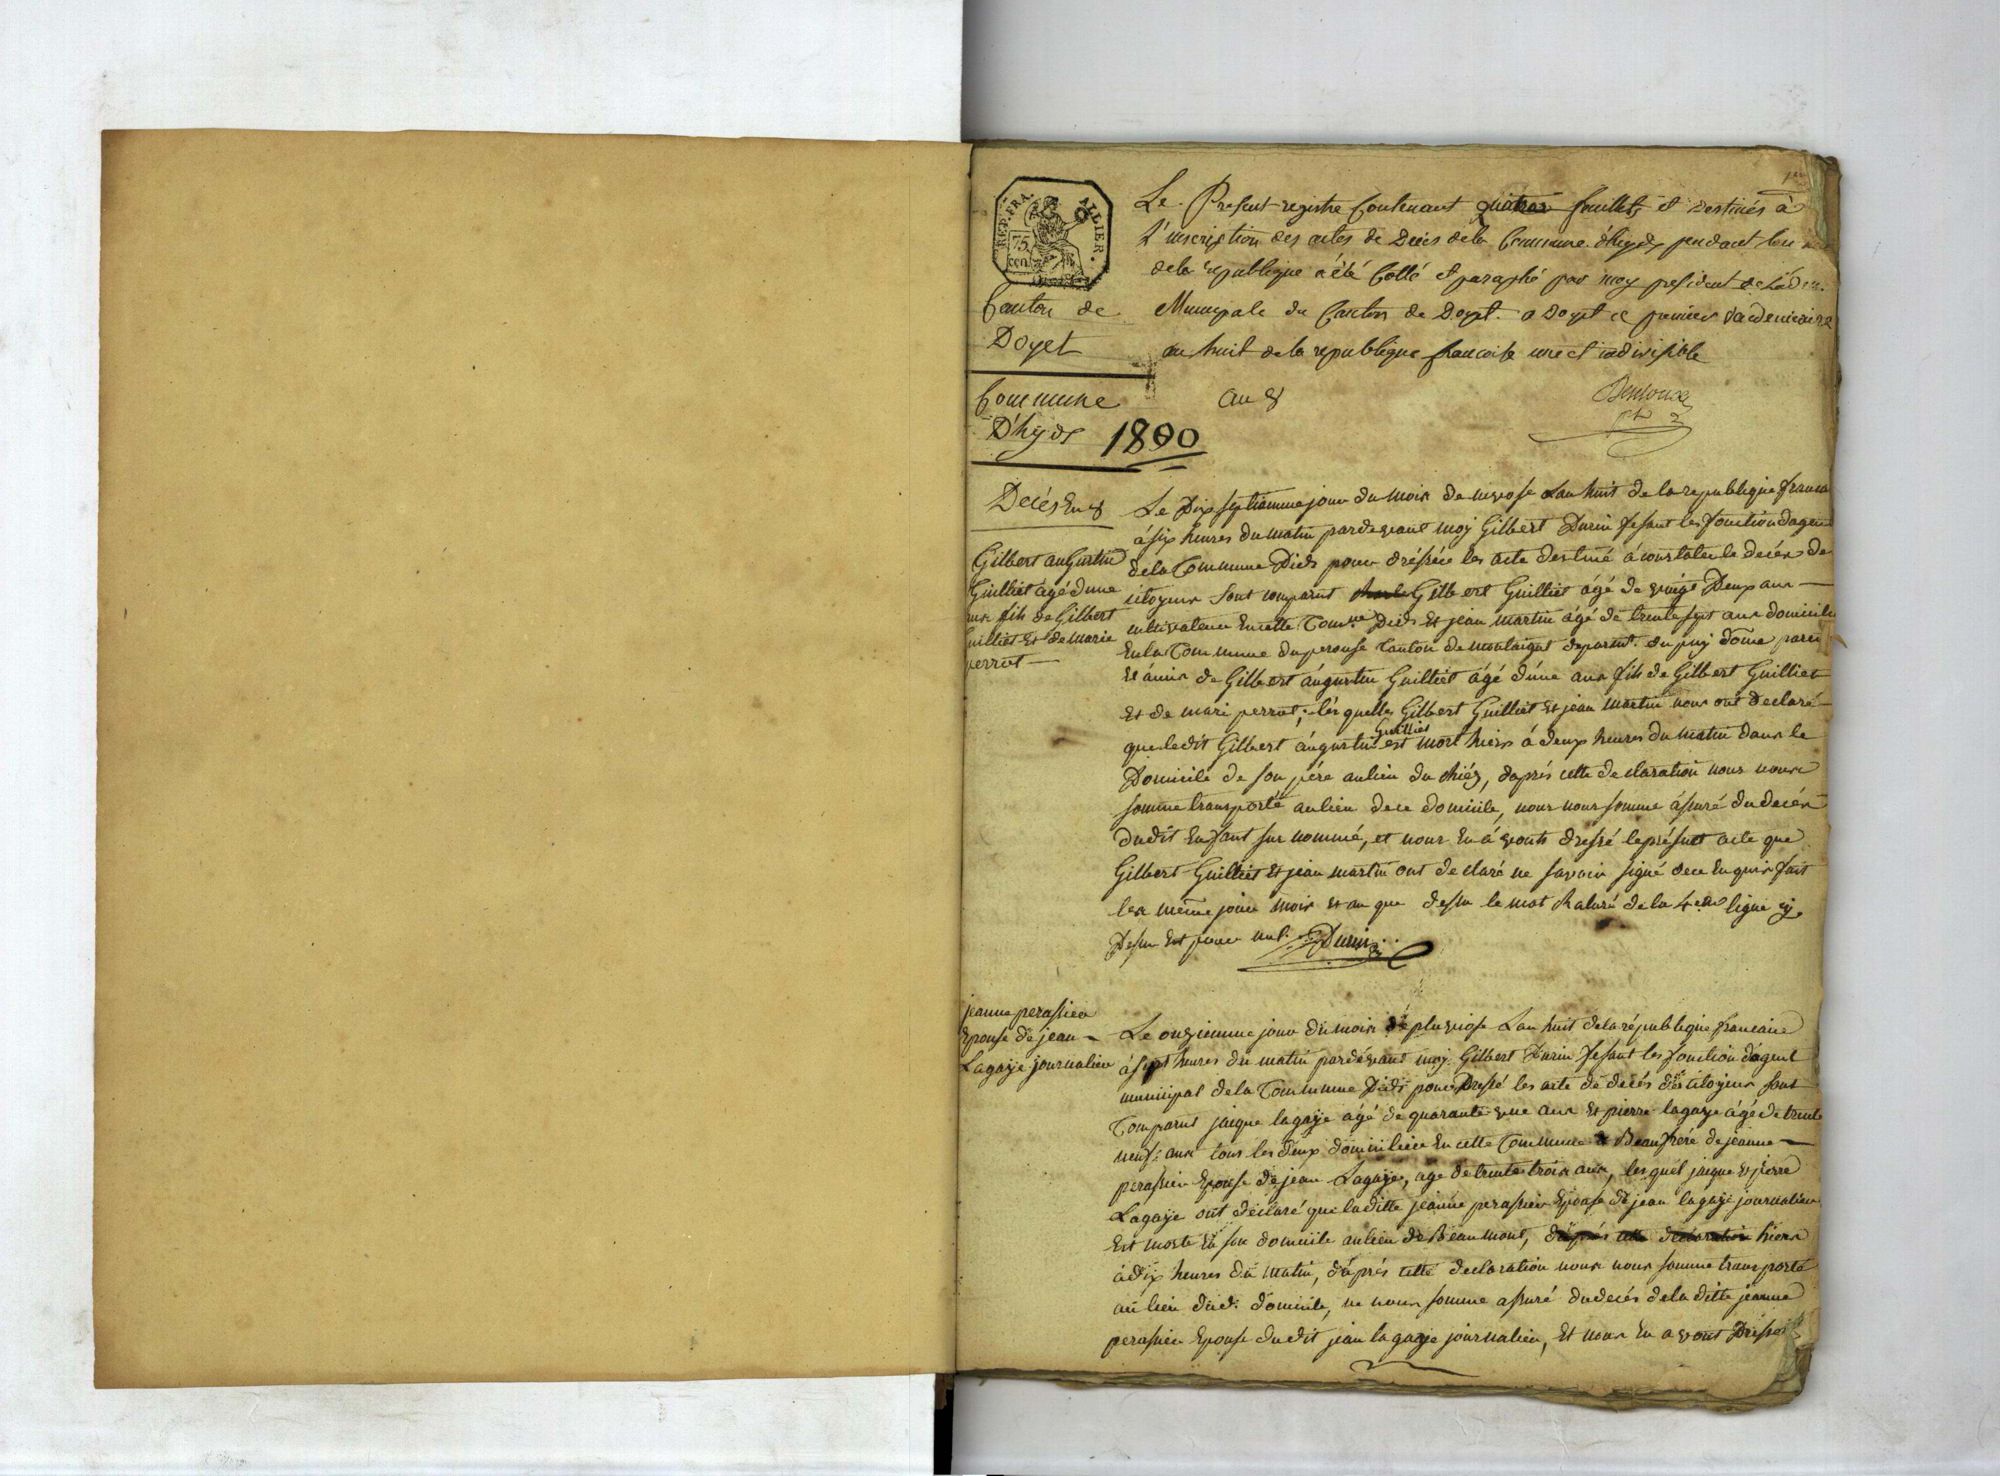 1er
REP. FRA. ALLIER.
75 cen
Le Present registre Contenant quatre feuillets et destinés à
l'inscription des actes de Décès dela Commune d'hyds pendant lan
dela republique a été Cotté et paraphé par moy president de l'adm.
Municipale du Canton de Doyet. a Doyet ce premier vandemiaire
an huit dela republique francoise une et indivisible
Canton de
Doyet
Commune
D'hyds 1800
an 8
Decés En 8
Gilbert augustin
Guilliet âgé dune
ans fils de Gilbert
Guilliet Et de marie
perrot
Le Dix septiemme jour du mois de nivose Lan huit de la republique francai
à six heures du matin pardevant moy Gilbert Durin fesant les fonction dagent
dela Commune Dids pour dréssée les acte destiné à constater le decés de
citoyens sont comparut Gilbert Guilliet âgé de vingt Deux ans
cultivateur En cette Comne Dids Et jean martin âgé de trente sept ans domicilié
En la Commune duperouse Canton de montaigut departt. du puy dome paren
Et ámis de Gilbert áugustin Guilliet âgé dúne ans fils de Gilbert Guilliet
Et de mari perrot, lés quelles Gilbert Guilliet Et jean martin nous ont Declaré
Guilliet
que ledit Gilbert áugustin est mort hiers á deux heures du matin dans le
Domicile de son pére au lieu du chiéz, daprés cette declaration nous nous
somme transporté au lieu de ce domicile, nous nous somme ássuré du decés
dudit Enfant sur nommé, et nous En á vonts dressé le présent acte que
Gilbert Guilliet Et jean martin ont declaré ne savoir signé de ce Enquis fait
les même jour mois et an que dessu le mot Raturé de la 4eme ligne cy
Dessu Est pour nul. Durin
jeanne perassier
Epouse de jean
Lagaÿe journalier
Le onziemme jour du mois de pluviose Lan huit dela république francaise
à sept heures du matin pardévant moy Gilbert Durin fesant les fonction dagent
municipal dela Commune Dids pour Dressé les acte de decés des citoyens sont
Comparut jacque lagaÿe âgé de quarante une ans Et pierre lagaye âgé de trente
neuf ans tous les deux domiciliée En cette Commune Beaufrére de jeanne
perassier Epouse de jean Lagaÿe, age de trente trois ans, les quel jacque et pierre
Lagaÿe ont déclaré que laditte jeanne perassier Epouse de jean lagaÿe journalier
Est morte En son domicile au lieu de Beaumont, daprés cette declaration hiers
à dix heures du matin, daprés cette declaration nous nous somme transporté
au lieu dud. domicile, ne nous somme assuré du decés dela ditte jeanne
perassier Epouse dudit jean lagaye journalier, Et nous En avont Dressé